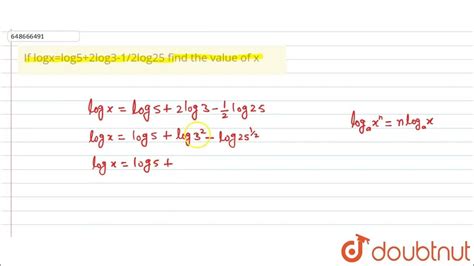 648666491
If logx=log5+2log3-1/2log25 find the value of x
log x = log 5 + 2 log 3 - 1/2 log 25
log x = log 5 + log 3² - log 25^{1/2}
logₐ xⁿ = n logₐ x
log x = log 5 +
doubtnut